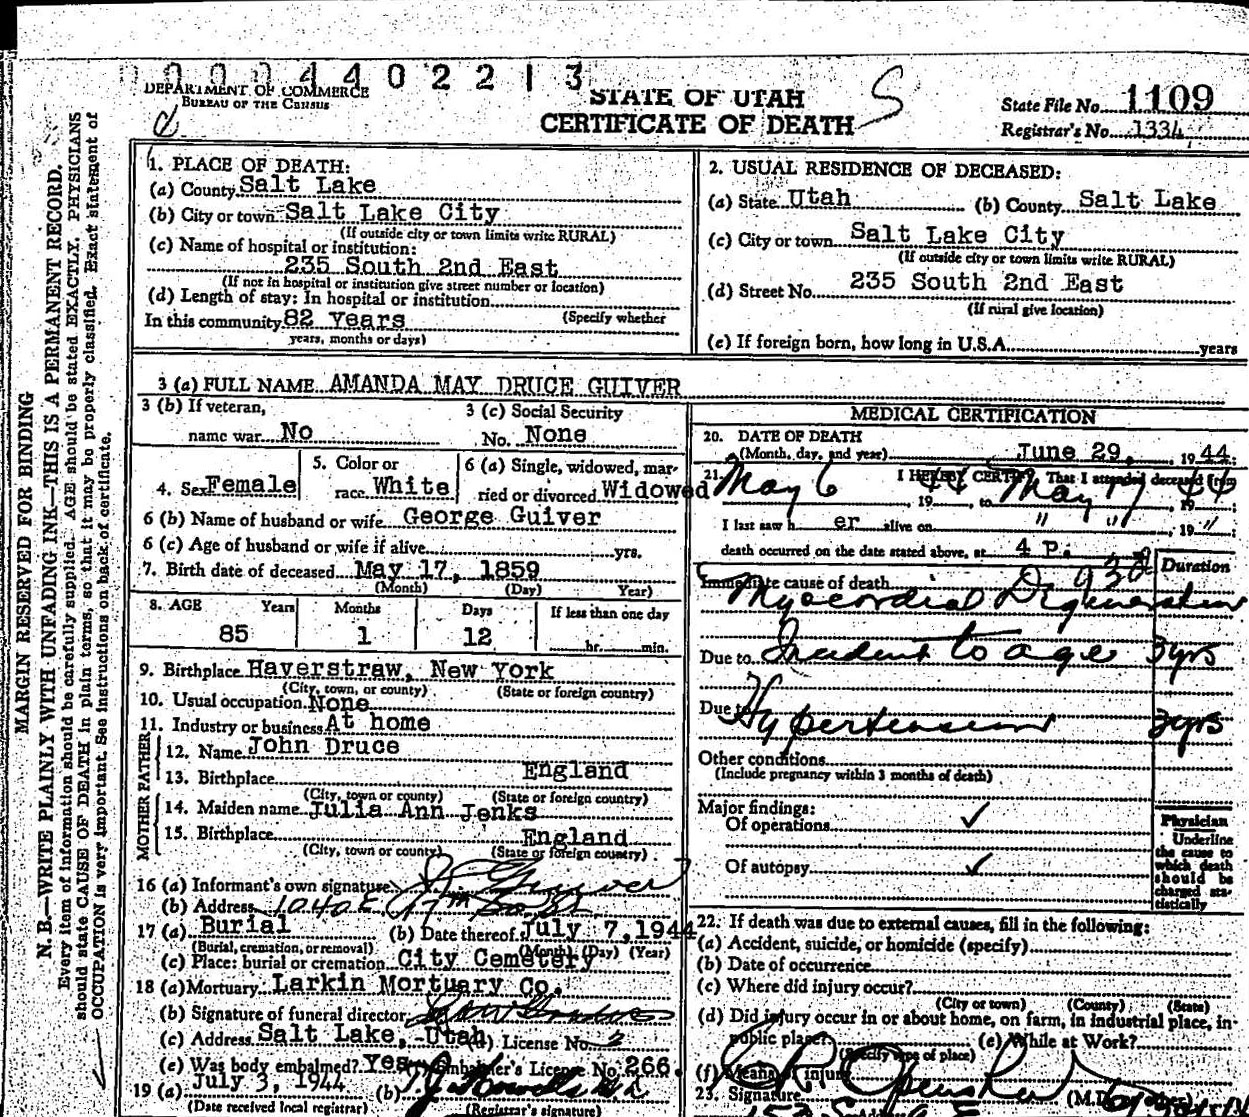 0 0 0 0 4 4 0 2 2 1 3
DEPARTMENT OF COMMERCE
BUREAU OF THE CENSUS
STATE OF UTAH
CERTIFICATE OF DEATH
S
State File No. 1109
Registrar's No. 1334
MARGIN RESERVED FOR BINDING
N. B.—WRITE PLAINLY WITH UNFADING INK—THIS IS A PERMANENT RECORD.
Every item of information should be carefully supplied. AGE should be stated EXACTLY. PHYSICIANS
should state CAUSE OF DEATH in plain terms, so that it may be properly classified. Exact statement of
OCCUPATION is very important. See instructions on back of certificate.
1. PLACE OF DEATH:
(a) County Salt Lake
(b) City or town Salt Lake City
(If outside city or town limits write RURAL)
(c) Name of hospital or institution:
235 South 2nd East
(If not in hospital or institution give street number or location)
(d) Length of stay: In hospital or institution
(Specify whether
In this community 82 Years
years, months or days)
2. USUAL RESIDENCE OF DECEASED:
(a) State Utah (b) County Salt Lake
(c) City or town Salt Lake City
(If outside city or town limits write RURAL)
(d) Street No. 235 South 2nd East
(If rural give location)
(e) If foreign born, how long in U.S.A. years
3 (a) FULL NAME AMANDA MAY DRUCE GUIVER
3 (b) If veteran,
name war No
3 (c) Social Security
No. None
4. Sex Female
5. Color or
race White
6 (a) Single, widowed, mar-
ried or divorced Widowed
6 (b) Name of husband or wife George Guiver
6 (c) Age of husband or wife if alive yrs.
7. Birth date of deceased May 17, 1859
(Month) (Day) Year)
8. AGE Years Months Days If less than one day
85 1 12 hr. min.
9. Birthplace Haverstraw, New York
(City, town, or county) (State or foreign country)
10. Usual occupation None
11. Industry or business At home
FATHER
12. Name John Druce
13. Birthplace England
(City, town or county) (State or foreign country)
MOTHER
14. Maiden name Julia Ann Jenks
15. Birthplace England
(City, town or county) (State or foreign country)
16 (a) Informant's own signature Guiver
(b) Address 1040 E
17 (a) Burial (b) Date thereof July 7, 1944
(Burial, cremation, or removal) (Month) (Day) (Year)
(c) Place: burial or cremation City Cemetery
18 (a) Mortuary Larkin Mortuary Co.
(b) Signature of funeral director
(c) Address Salt Lake, Utah License No.
(e) Was body embalmed? Yes Embalmer's License No. 266.
19 (a) July 3, 1944 (b)
(Date received local registrar) (Registrar's signature)
MEDICAL CERTIFICATION
20. DATE OF DEATH
(Month, day, and year) June 29, 1944:
21. I HEREBY CERTIFY That I attended deceased from
May 6 1944 to May 17 1944
I last saw her alive on " " 19 " :
death occurred on the date stated above, at 4 P.
Duration
Immediate cause of death 93d
Myocardial Degeneration
Due to Incident to age 3 yrs
Due to Hypertension 3 yrs
Other conditions
(Include pregnancy within 3 months of death)
Major findings:
Of operations ✓
Of autopsy ✓
Physician
Underline
the cause to
which death
should be
charged sta-
tistically
22. If death was due to external causes, fill in the following:
(a) Accident, suicide, or homicide (specify)
(b) Date of occurrence
(c) Where did injury occur?
(City or town) (County) (State)
(d) Did injury occur in or about home, on farm, in industrial place, in
public place? (e) While at Work?
(Specify type of place)
(f) Means of injury
23. Signature (M.D. or other)